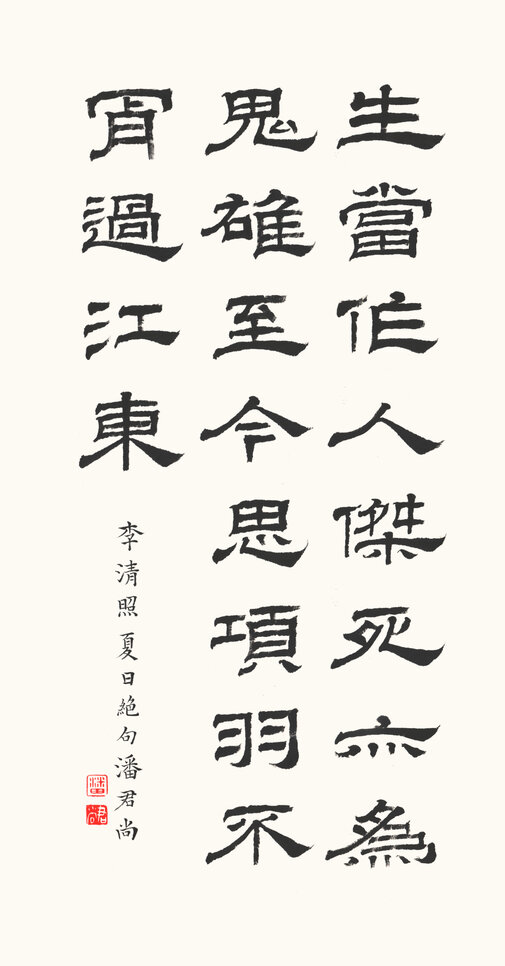 生當作人傑死亦為
鬼雄至今思項羽不
肯過江東
李清照夏日絕句潘君尚
潘
君尚